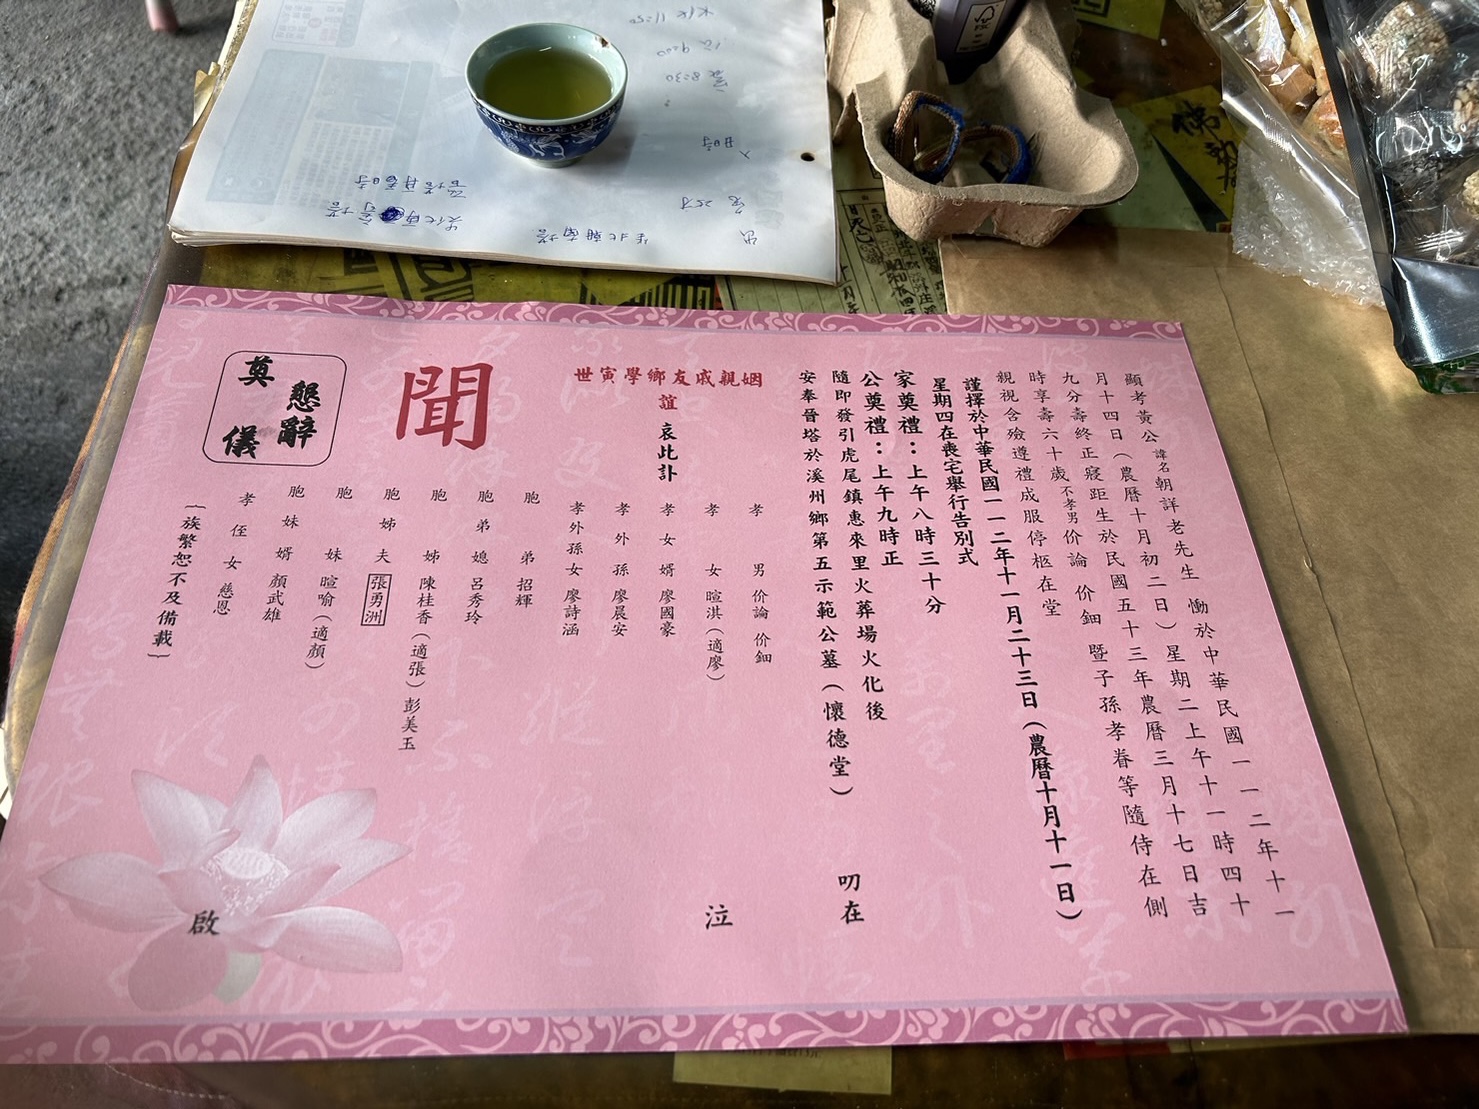 顯考黃公諱名朝詳老先生 慟於中華民國一一二年十一
月十四日（農曆十月初二日）星期二上午十一時四十
九分壽終正寢距生於民國五十三年農曆三月十七日吉
時享壽六十歲不孝男价論 价鈿 暨子孫孝眷等隨侍在側
親視含殮遵禮成服停柩在堂
謹擇於中華民國一一二年十一月二十三日（農曆十月十一日）
星期四在喪宅舉行告別式
家奠禮：上午八時三十分
公奠禮：上午九時正
隨即發引虎尾鎮惠來里火葬場火化後
安奉晉塔於溪州鄉第五示範公墓（懷德堂） 叨在
姻親戚友鄉學寅世
誼 哀此訃
聞
孝 男 价論 价鈿
孝 女 暄淇（適廖） 泣
孝 女 婿 廖國豪
孝 外 孫 廖晨安
孝外孫女 廖詩涵
胞 弟 招輝
胞 弟 媳 呂秀玲
胞 姊 陳桂香（適張）彭美玉
胞 姊 夫 張勇洲
胞 妹 暄喻（適顏）
胞 妹 婿 顏武雄
孝 侄 女 慈恩 啟
（族繁恕不及備載）
懇辭
奠儀
水化 11:50
8:30
入日時
生北朝南塔
FSC
佛